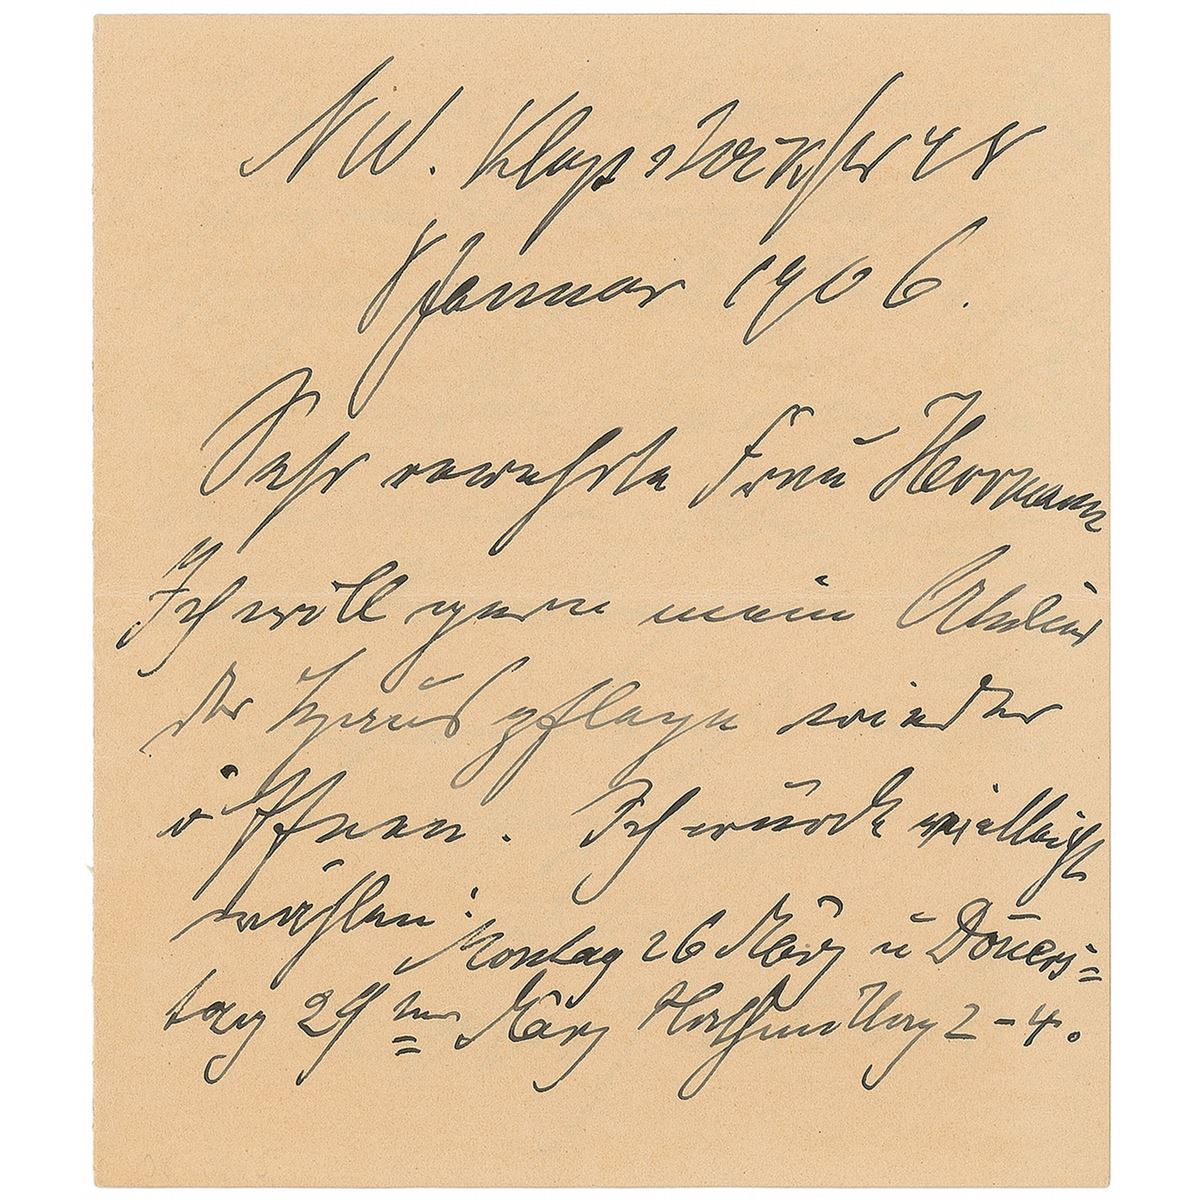 NW. Klopstockstr 48
8 Januar 1906.
Sehr verehrte Frau Herrmann
Ich will gern mein Atelier
der Hauspflege wieder
öffnen. Ich würde vielleicht
wählen: Montag 26 März u Donners=
tag 29ten März Nachmittag 2-4.